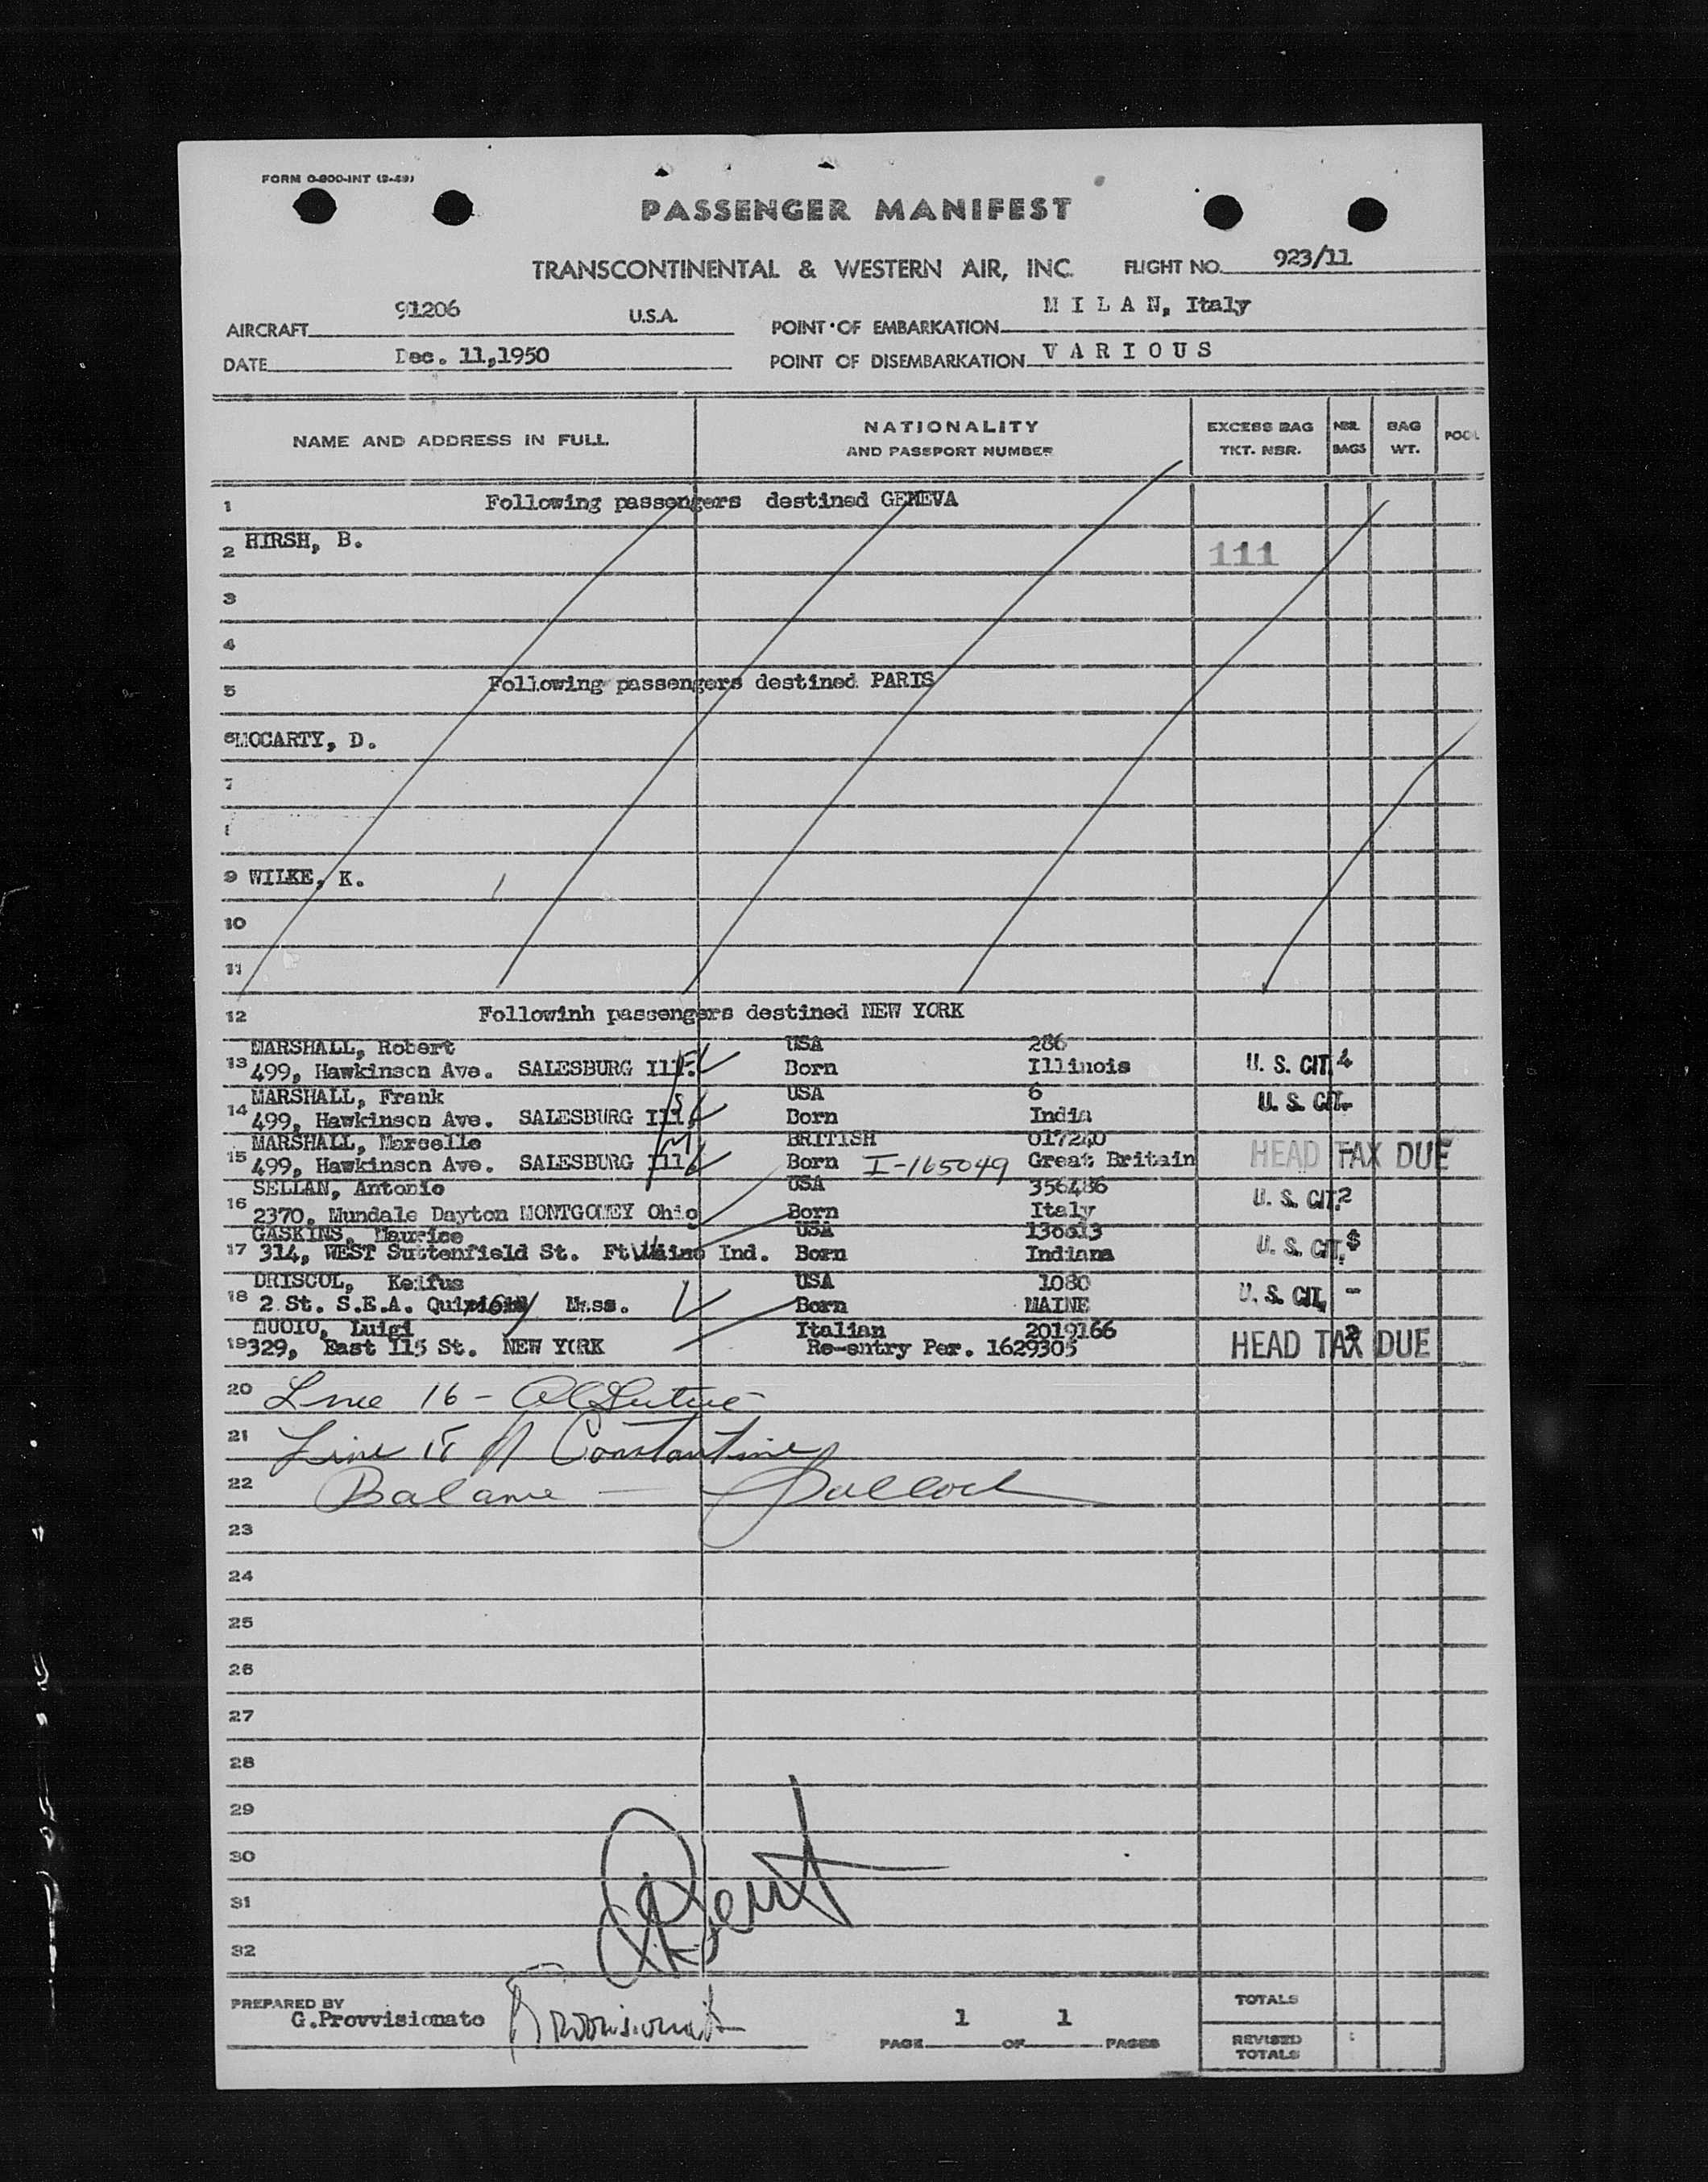 FORM O-800-INT (9-49)
PASSENGER MANIFEST
TRANSCONTINENTAL & WESTERN AIR, INC. FLIGHT NO. 923/11
AIRCRAFT 91206 U.S.A. POINT OF EMBARKATION M I L A N, Italy
DATE Dec. 11,1950 POINT OF DISEMBARKATION V A R I O U S
NAME AND ADDRESS IN FULL NATIONALITY AND PASSPORT NUMBER EXCESS BAG TKT. NBR. NBR. BAGS BAG WT. POOL
1 Following passengers destined GENEVA
2 HIRSH, B. 111
3
4
5 Following passengers destined PARIS
6 MOCARTY, D.
7
8
9 WILKE, K.
10
11
12 Followinh passengers destined NEW YORK
MARSHALL, Robert USA 286
13 499, Hawkinson Ave. SALESBURG Ill. Born Illinois U. S. CIT. 4
MARSHALL, Frank USA 6
14 499, Hawkinson Ave. SALESBURG Ill. Born India U. S. CIT.
MARSHALL, Marcelle BRITISH 017240
15 499, Hawkinson Ave. SALESBURG Ill. Born I-165049 Great Britain HEAD TAX DUE
SELLAN, Antonio USA 356486
16 2370, Mundale Dayton MONTGOMEY Ohio Born Italy U. S. CIT. 2
GASKINS, Maurice USA 136613
17 314, WEST Suttenfield St. Ft Ind. Born Indiana U. S. CIT.
DRISCOL, Keifus USA 1080
18 2 St. S.E.A. Mass. Born MAINE U. S. CIT. -
MUOIO, Luigi Italian 2019166
19 329, East 115 St. NEW YORK Re-entry Per. 1629305 HEAD TAX DUE
20 Line 16 -
21 Line 15 Constantine
22 Balance -
23
24
25
26
27
28
29
30
31
32
PREPARED BY G.Provvisionato PAGE 1 OF 1 PAGES
TOTALS
REVISED TOTALS